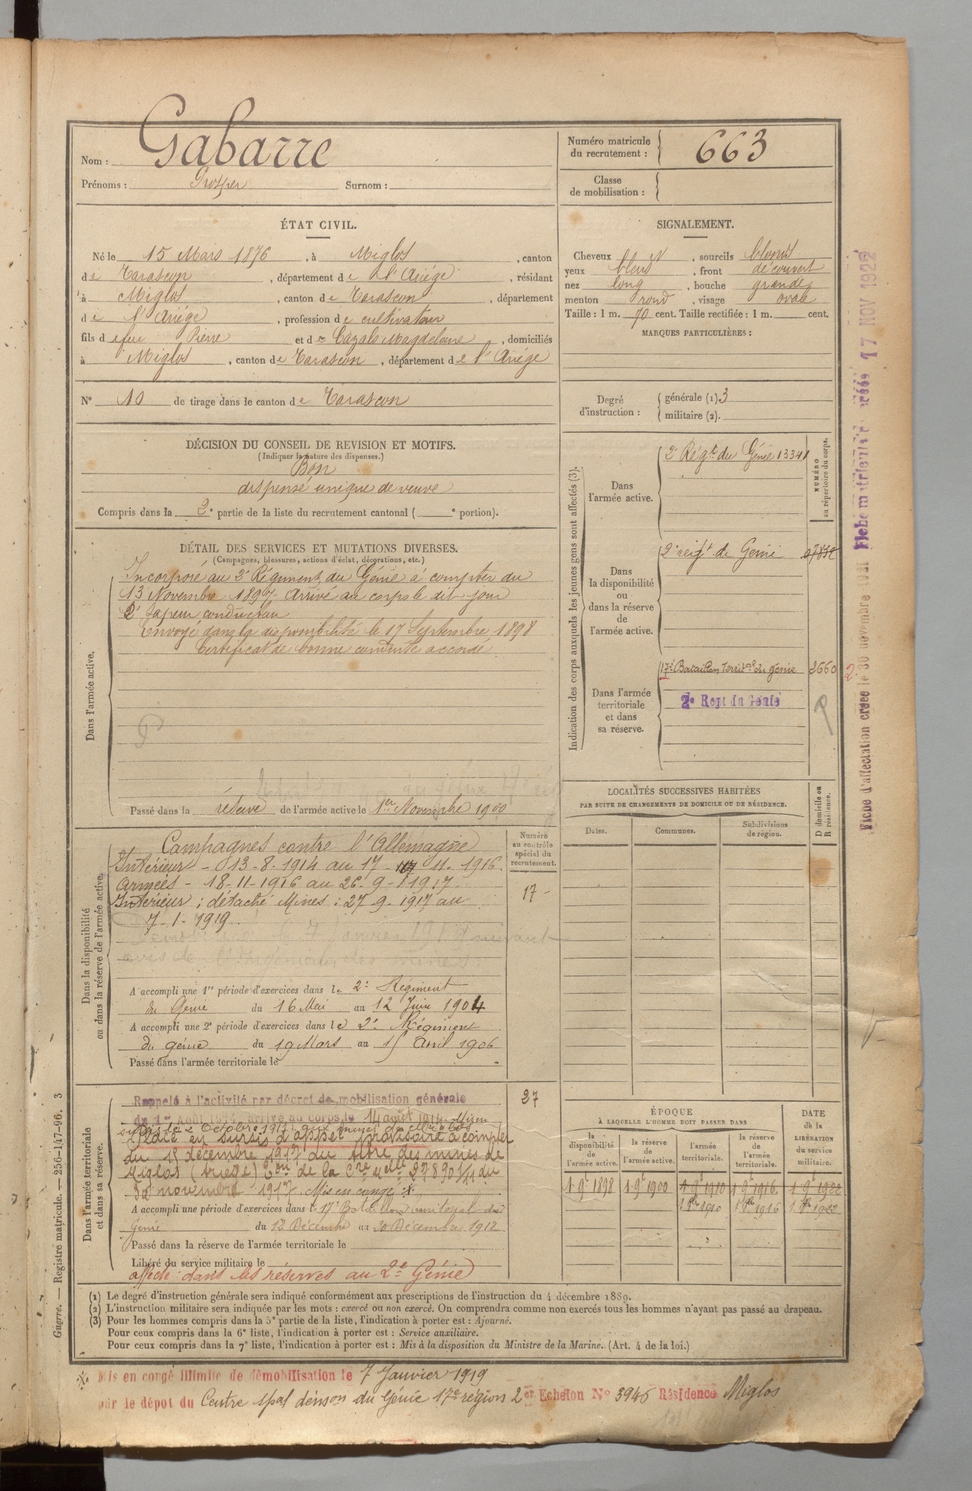 Nom : Gabarre
Prénoms : Prosper Surnom :
Numéro matricule du recrutement : 663
Classe de mobilisation :
ÉTAT CIVIL.
Né le 15 Mars 1876, à Miglos, canton
de Tarascon, département de l'Ariége, résidant
à Miglos, canton de Tarascon, département
de l'Ariége, profession de cultivateur
fils de feu Pierre et de Cazals Magdelaine, domiciliés
à Miglos, canton de Tarascon, département de l'Ariége
N° 10 de tirage dans le canton de Tarascon
SIGNALEMENT.
Cheveux blonds, sourcils blonds
yeux bleus, front découvert
nez long, bouche grande
menton rond, visage ovale
Taille : 1 m. 70 cent. Taille rectifiée : 1 m. cent.
MARQUES PARTICULIÈRES :
Degré d'instruction : générale (1) 3
militaire (2).
DÉCISION DU CONSEIL DE REVISION ET MOTIFS.
(Indiquer la nature des dispenses.)
Bon
dispensé unique de veuve
Compris dans la 2e partie de la liste du recrutement cantonal ( e portion).
DÉTAIL DES SERVICES ET MUTATIONS DIVERSES.
(Campagnes, blessures, actions d'éclat, décorations, etc.)
Dans l'armée active.
Incorporé au 2e Régiment du Génie à compter du
13 Novembre 1897. Arrivé au corps le dit jour
2e Sapeur conducteur
Envoyé dans la disponibilité le 17 Septembre 1898
Certificat de bonne conduite accordé.
Passé dans la réserve de l'armée active le 1er Novembre 1900
Indication des corps auxquels les jeunes gens sont affectés (3).
NUMÉRO au répertoire du corps.
Dans l'armée active. 2e Régt du Génie 13341
Dans la disponibilité ou dans la réserve de l'armée active. 2e régt de Génie
Dans l'armée territoriale et dans sa réserve. 17e Bataillon territal du génie 3660
2e Regt du Génie
LOCALITÉS SUCCESSIVES HABITÉES
PAR SUITE DE CHANGEMENTS DE DOMICILE OU DE RÉSIDENCE.
Dates. Communes. Subdivisions de région. D domicile ou R résidence.
Dans la disponibilité ou dans la réserve de l'armée active.
Numéro au contrôle spécial du recrutement.
Campagnes contre l'Allemagne
Intérieur - 13-8-1914 au 17-11-1916.
Armées - 18-11-1916 au 26-9-1917.
Intérieur ; détaché Mines : 27-9-1917 au
7-1-1919.
17
A accompli une 1re période d'exercices dans le 2e Régiment
du Génie du 16 Mai au 12 Juin 1904
A accompli une 2e période d'exercices dans le 2e Régiment
du génie du 19 Mars au 15 Avril 1906
Passé dans l'armée territoriale le
Dans l'armée territoriale et dans sa réserve.
Rappelé à l'activité par décret de mobilisation générale
du 1er Août 1914 arrivé au corps le 14 août 1914. Mis en
Placé en sursis d'appel provisoire à compter
du 15 décembre 1917 au titre des mines de
Miglos (Ariège)
30 novembre 1917. Mis en congé
37
A accompli une période d'exercices dans le 17e Bataillon territorial du
Génie du 12 Décembre au 20 Décembre 1912
Passé dans la réserve de l'armée territoriale le
Libéré du service militaire le
affecté dans les réserves au 2e Génie
ÉPOQUE
À LAQUELLE L'HOMME DOIT PASSER DANS
DATE de la LIBÉRATION du service militaire.
la disponibilité de l'armée active. la réserve de l'armée active. l'armée territoriale. la réserve de l'armée territoriale.
1 9e 1898 1 9e 1900 1 9e 1910 1 9e 1916 1 9e 1922
(1) Le degré d'instruction générale sera indiqué conformément aux prescriptions de l'instruction du 4 décembre 1889.
(2) L'instruction militaire sera indiquée par les mots : exercé ou non exercé. On comprendra comme non exercés tous les hommes n'ayant pas passé au drapeau.
(3) Pour les hommes compris dans la 5e partie de la liste, l'indication à porter est : Ajourné.
Pour ceux compris dans la 6e liste, l'indication à porter est : Service auxiliaire.
Pour ceux compris dans la 7e liste, l'indication à porter est : Mis à la disposition du Ministre de la Marine. (Art. 4 de la loi.)
Mis en congé illimité de démobilisation le 7 Janvier 1919
par le dépôt du Centre spal démon du Génie 17e région 2e Echelon N° 3945 Résidence Miglos
Guerre. — Registre matricule. — 256-147-96. 3
Fiche d'affectation créée le 30 novembre Fiche matricule créée 17 NOV 1922